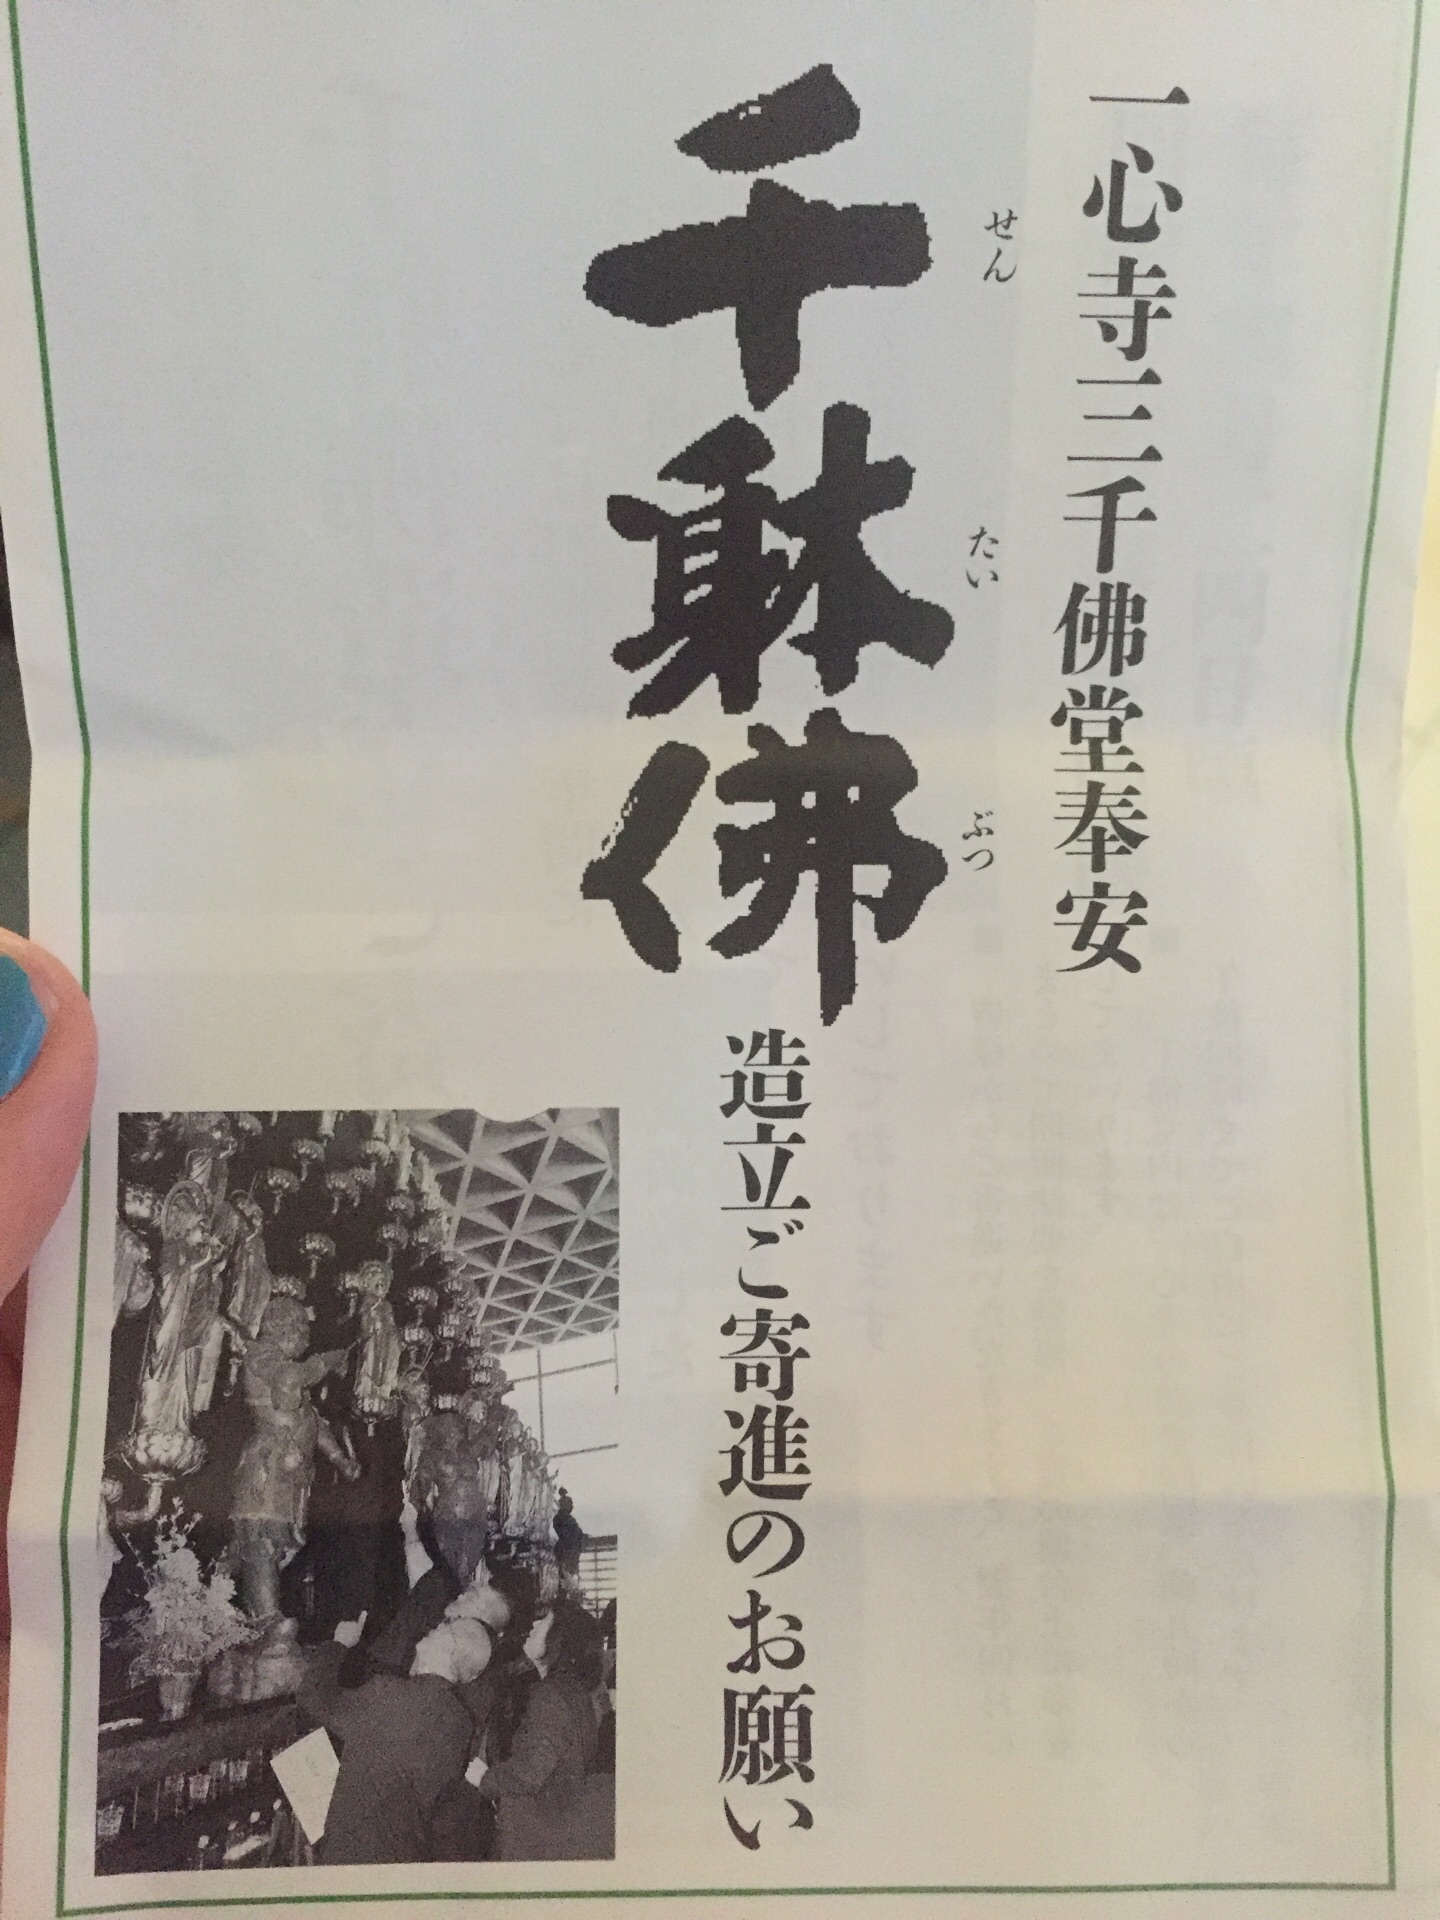 一心寺三千佛堂奉安
千躰佛
せん
たい
ぶつ
造立ご寄進のお願い